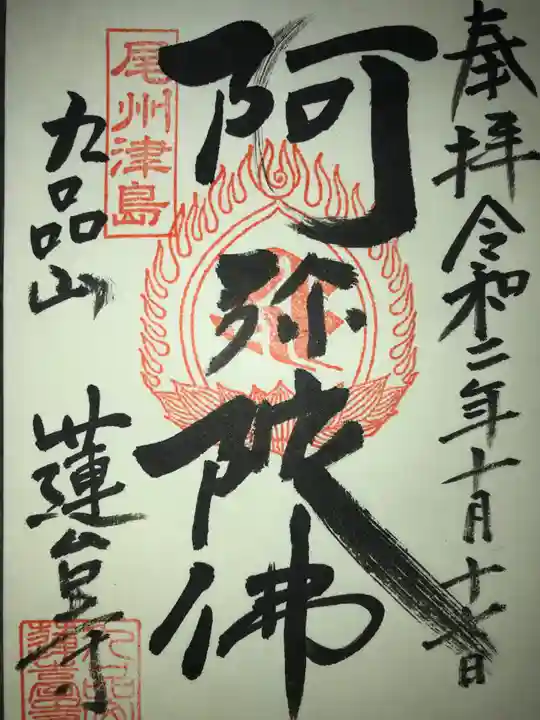 奉拝 令和二年十月十七日
阿弥陀佛
尾州津島
九品山 蓮台寺